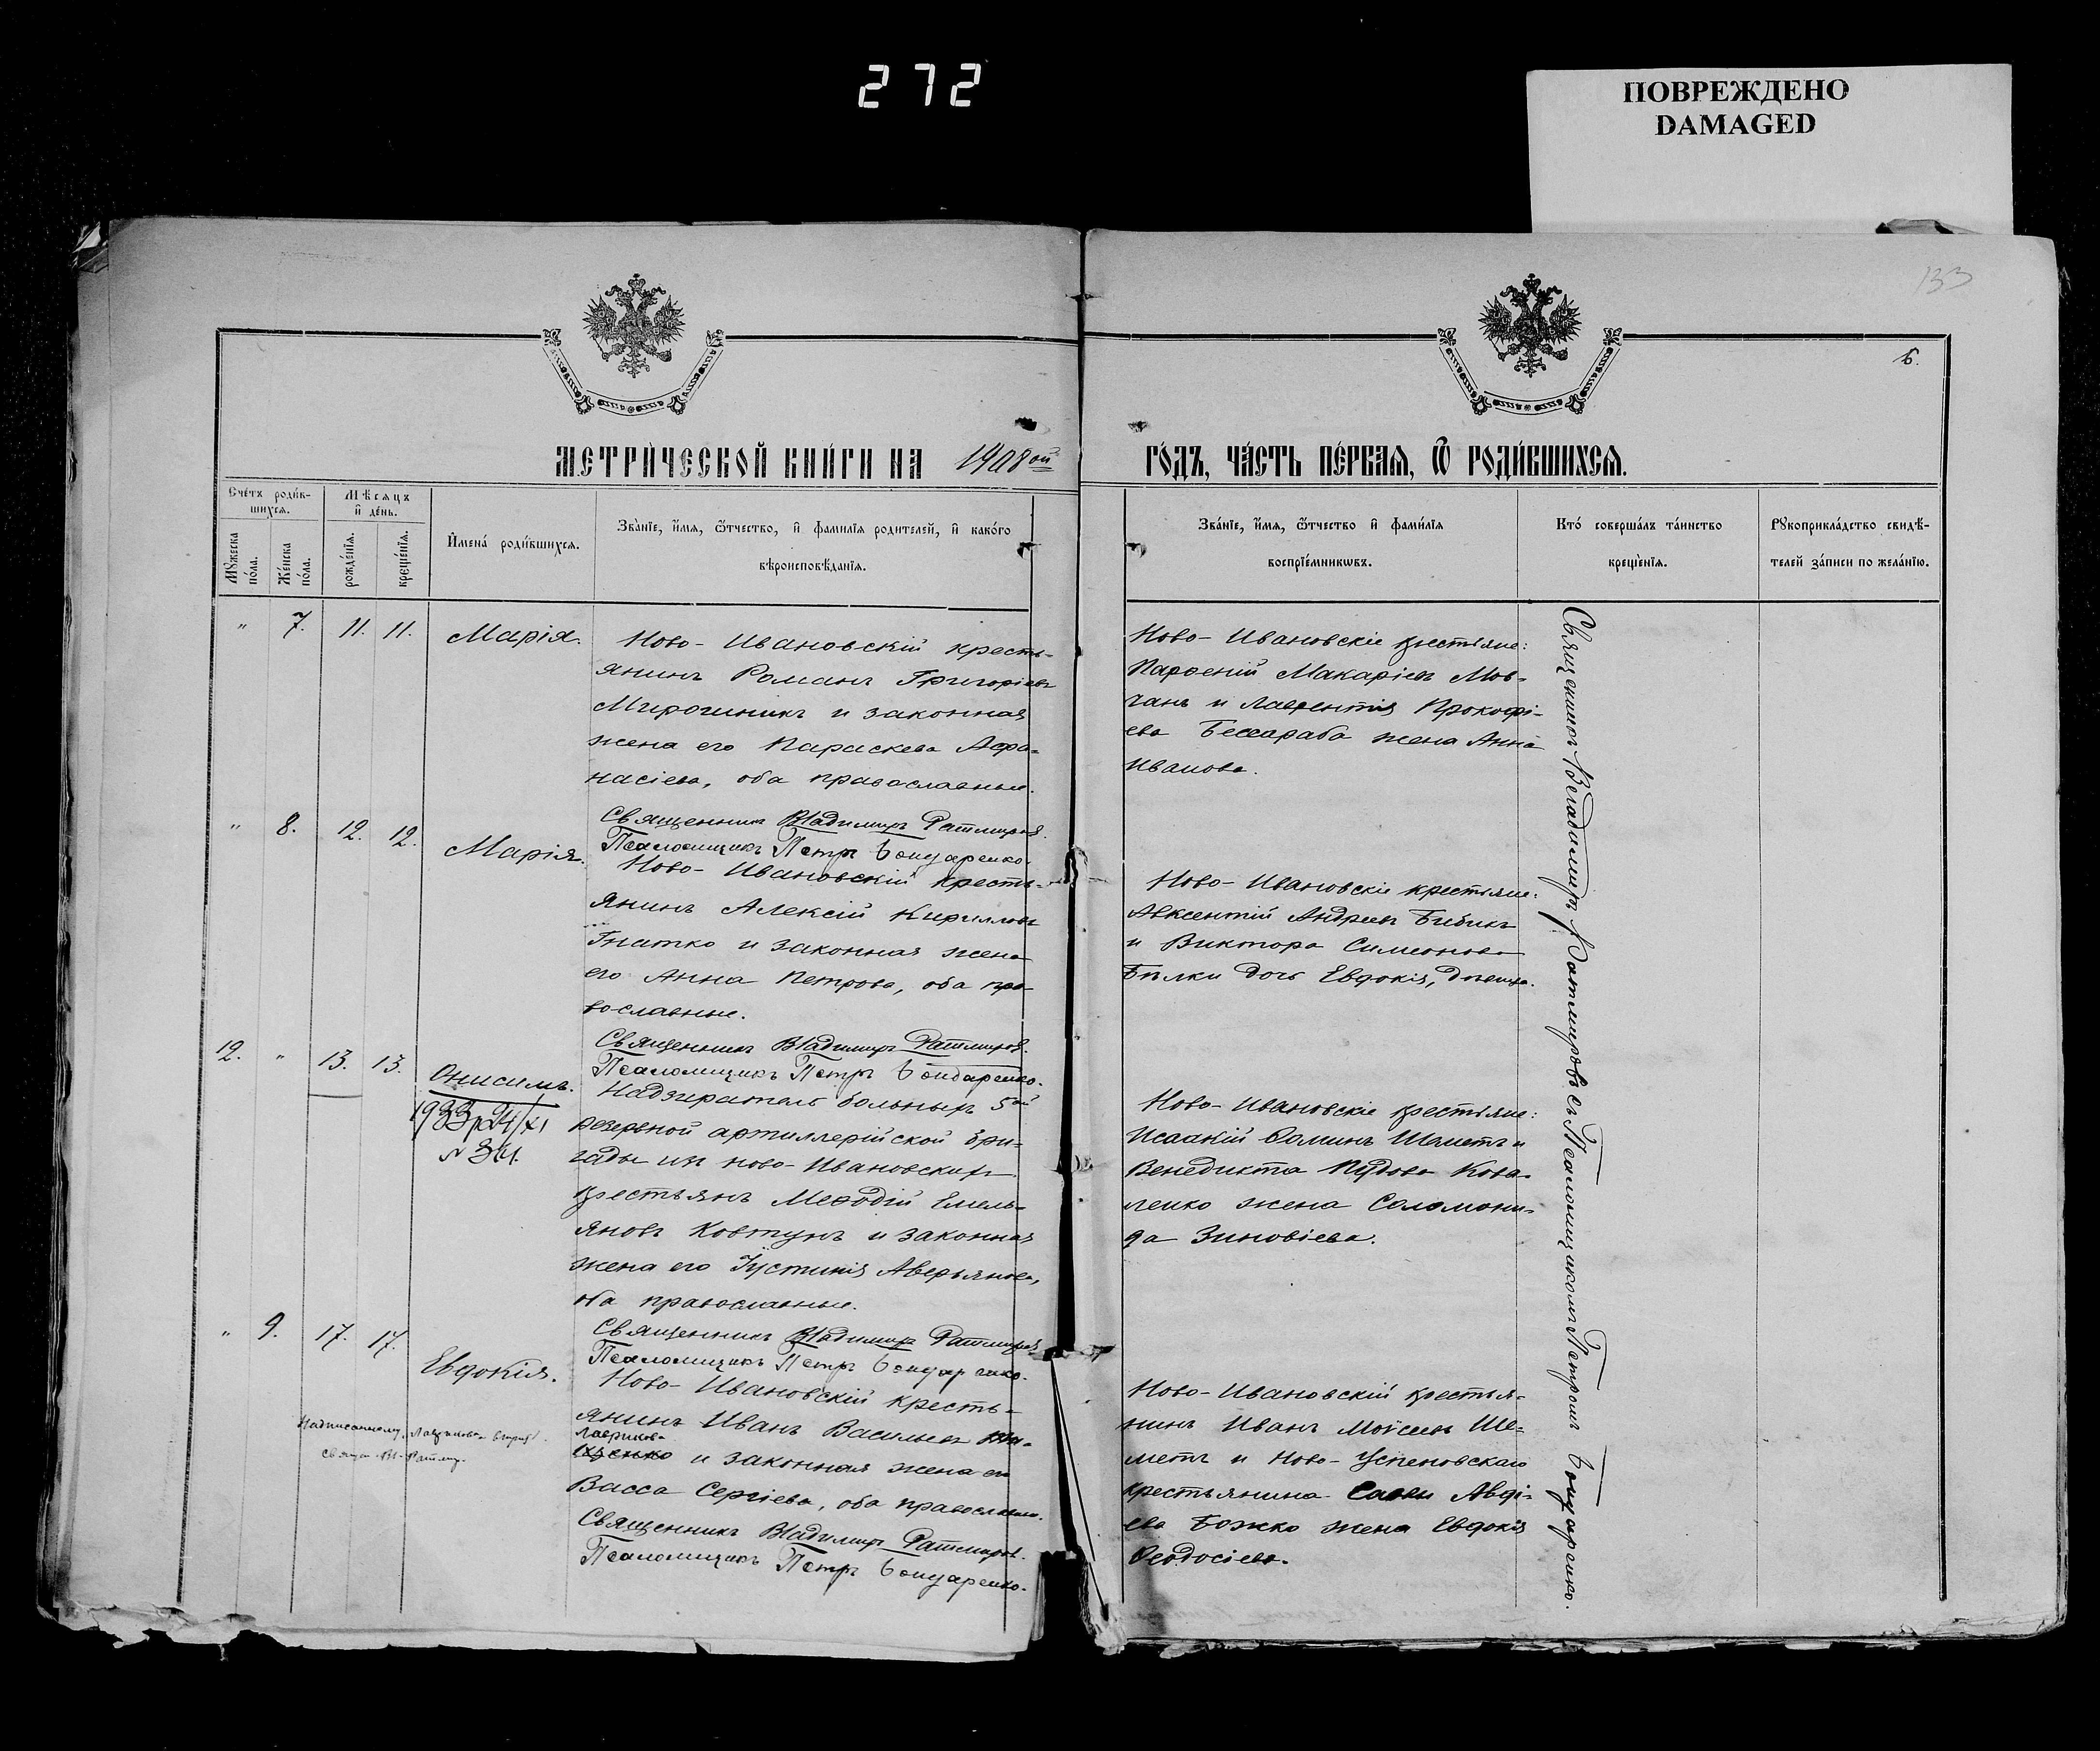 272
ПОВРЕЖДЕНО
DAMAGED
133
6.
МЕТРИ́ЧЕСКОЙ КНИ́ГИ НА 1908ой
ГО́ДЪ, ЧА́СТЬ ПЕ́РВАЯ, Ѿ РОДИ́ВШИХСЯ.
Сче́тъ роди́в-
шихся.
Мѣсяцъ
и҆ де́нь.
Мꙋ́жеска
по́ла.
Же́нска
по́ла.
рожде́нїя.
креще́нїя.
И҆мена̀ роди́вшихся.
Зва́нїе, и҆́мя, ѻ҆́тчество, и҆ фами́лїя роди́телей, и҆ како́го
вѣроисповѣ́данїя.
Зва́нїе, и҆́мя, ѻ҆́тчество и҆ фами́лїя
воспрїе́мникѡвъ.
Кто̀ соверша́лъ та́инство
креще́нїя.
Рꙋкоприкла́дство свидѣ́-
телей за́писи по жела́нїю.
" 7. 11. 11. Марія.
Ново-Ивановскій кресть-
янинъ Романъ Григоріевъ
Мирошникъ и законная
жена его Параскева Афа-
насіева, оба православные.
Священникъ Владимиръ Ратмировъ.
Псаломщикъ Петръ Бондаренко.
Ново-Ивановскіе крестьяне:
Парѳеній Макаріевъ Мов-
чанъ и Лаврентія Прокофі-
ева Бессараба жена Анна
Иванова.
" 8. 12. 12. Марія.
Ново-Ивановскій кресть-
янинъ Алексій Кирилловъ
Гнатко и законная жена
его Анна Петрова, оба пра-
вославные.
Священникъ Владимиръ Ратмировъ.
Псаломщикъ Петръ Бондаренко.
Ново-Ивановскіе крестьяне:
Авксентій Андреевъ Бибикъ
и Виктора Симеонова
Бѣлки дочь Евдокія, дѣвица.
12. " 13. 13. Онисимъ.
1933 р 24/XI
N 361.
Надзиратель больныхъ 5ой
резервной артиллерійской бри-
гады изъ Ново-Ивановскихъ
крестьянъ Меѳодій Емель-
яновъ Ковтунъ и законная
жена его Іустинія Аверьянова,
оба православные.
Священникъ Владимиръ Ратмировъ
Псаломщикъ Петръ Бондаренко.
Ново-Ивановскіе крестьяне:
Исаакій Ѳоминъ Шеметъ и
Венедикта Пудова Кова-
ленко жена Соломони-
да Зиновіева.
" 9. 17. 17. Евдокія.
Надписанному „Лаврикова" вѣрить.
Священ. Вл. Ратмир.
Ново-Ивановскій кресть-
янинъ Иванъ Васильевъ
Лаврикова
и законная жена его
Васса Сергіева, оба православные.
Священникъ Владимиръ Ратмировъ.
Псаломщикъ Петръ Бондаренко.
Ново-Ивановскій крестья-
нинъ Иванъ Моѵсеевъ Ше-
метъ и Ново-Успеновскаго
крестьянина Саввы Авді-
ева Божко жена Евдокія
Ѳеодосіева.
Священникъ Владимиръ Ратмировъ съ Псаломщикомъ Петромъ Бондаренко.